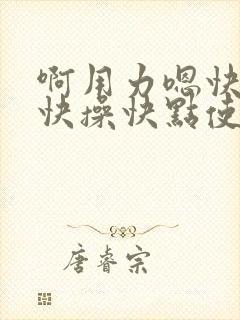 啊用力嗯快
快操快點使
唐睿宗